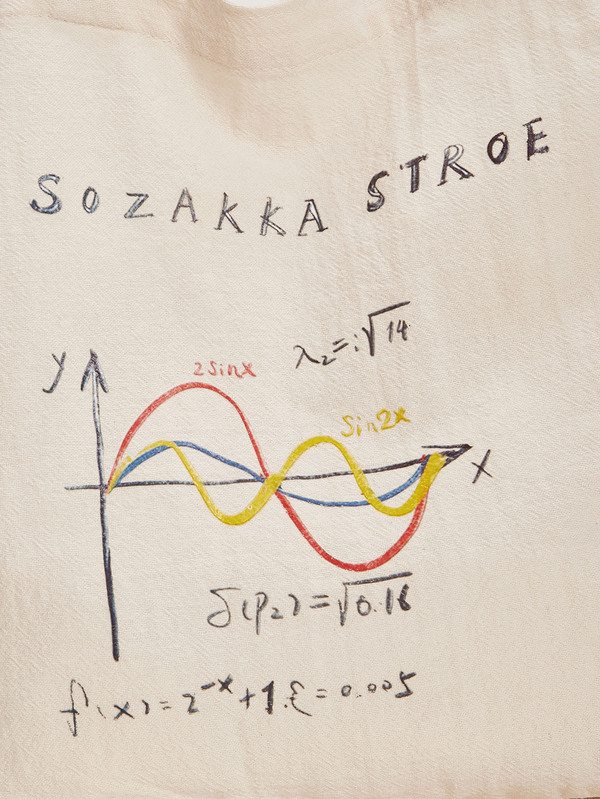 SOZAKKA STROE
λ₂=i√14
y
2sinx
sin2x
x
δ(p₂)=√0.16
f(x)=2⁻ˣ+1.ξ=0.005